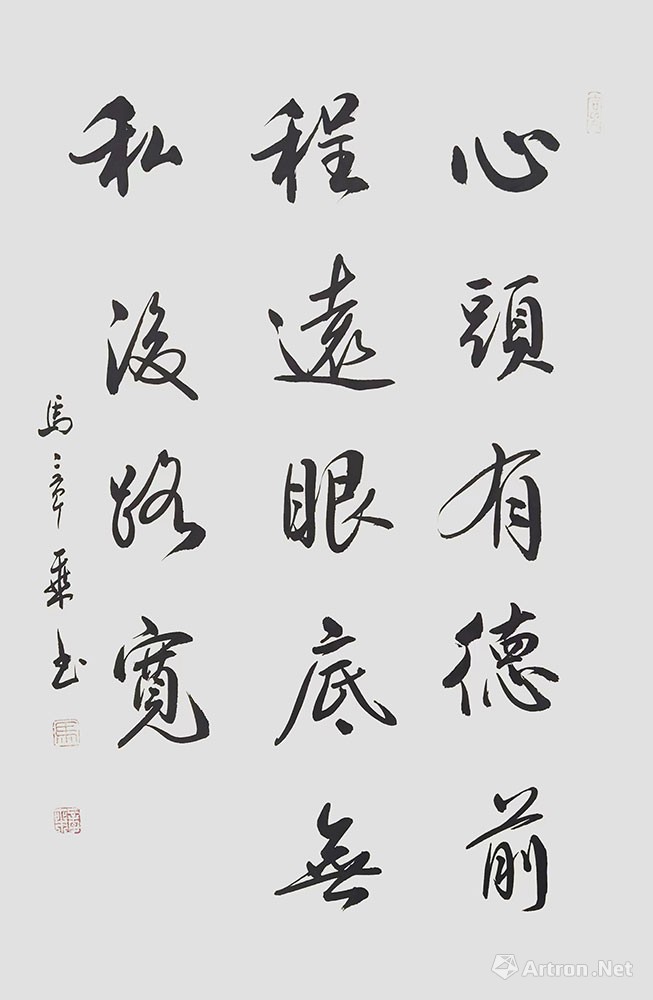 心頭有德前
程遠眼底無
私後路寬
馬章乘书
Artron.Net